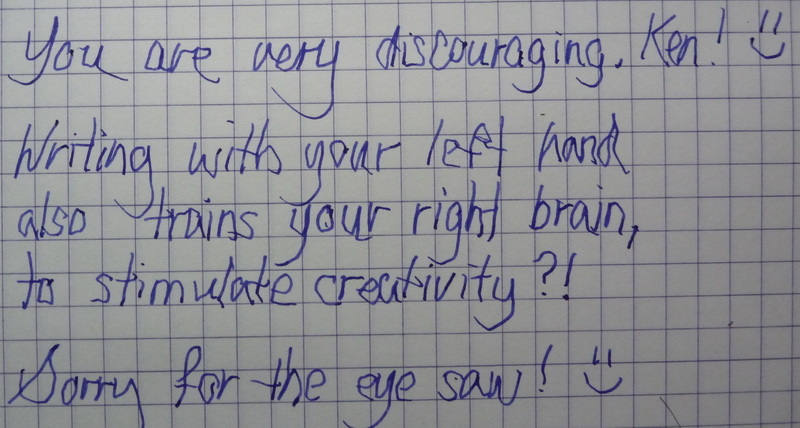 You are very discouraging. Ken! :)
Writing with your left hand
also trains your right brain,
to stimulate creativity?!
Sorry for the eye saw! :)